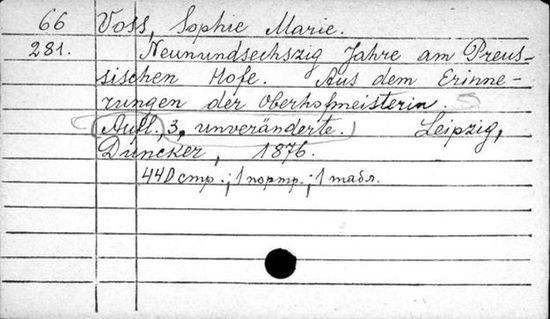 66 Voss, Sophie Marie.
281. Neunundsechszig Jahre am Preus-
sischen Hofe. Aus dem Erinne-
rungen der Oberhofmeisterin.
Aufl. 3, unveränderte. Leipzig,
Duncker, 1876.
440 стр.; 1 портр.; 1 табл.